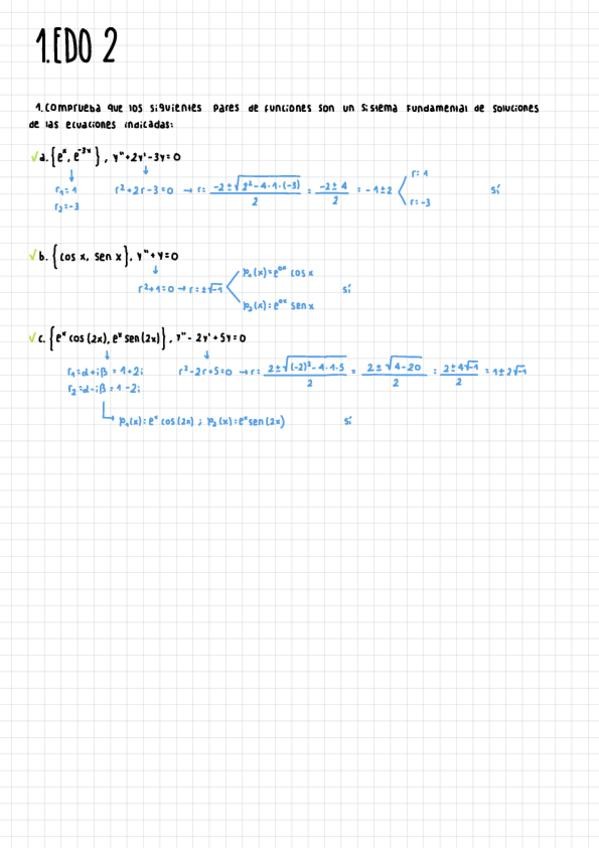 1.EDO 2
1. Comprueba que los siguientes pares de funciones son un sistema fundamental de soluciones
de las ecuaciones indicadas:
√ a. {eˣ, e⁻³ˣ}, y''+2y'-3y=0
↓ ↓
r₁=1 r²+2r-3=0 → r= (-2±√(2²-4·1·(-3)))/2 = (-2±4)/2 = -1±2 < r=1 sí
r₂=-3 r=-3
√ b. {cos x, sen x}, y''+y=0
↓ p₁(x)=e⁰ˣ cos x
r²+1=0 → r=±√-1 < sí
p₂(x)=e⁰ˣ sen x
√ c. {eˣ cos(2x), eˣ sen(2x)}, y''-2y'+5y=0
↓ ↓
r₁=α+iβ = 1+2i r²-2r+5=0 → r= (2±√((-2)²-4·1·5))/2 = (2±√(4-20))/2 = (2±4√-1)/2 = 1±2√-1
r₂=α-iβ = 1-2i
↳ p₁(x)=eˣ cos(2x) ; p₂(x)=eˣ sen(2x) sí